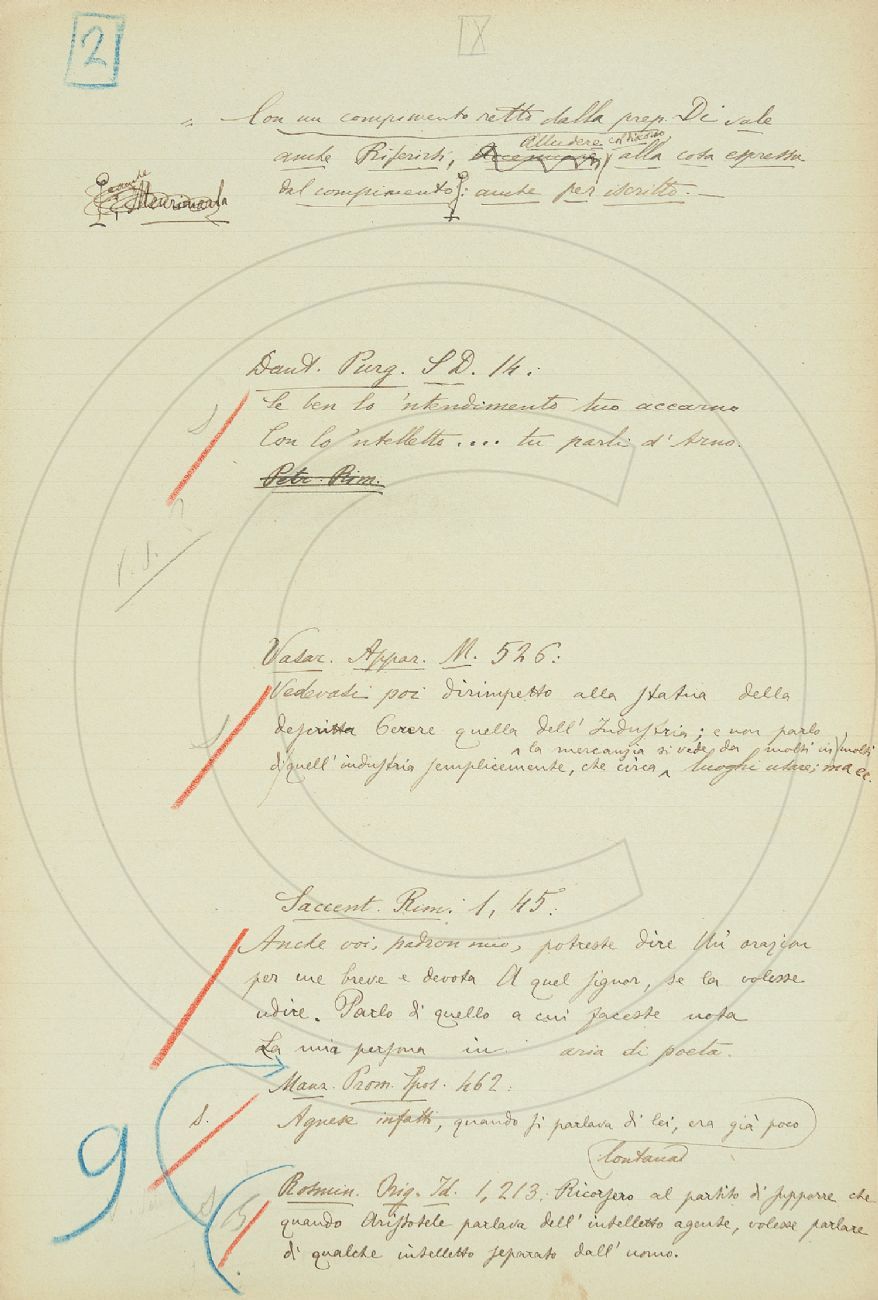 2
X
Con un compimento retto dalla prep. Di vale
anche Riferirsi, Alludere, alla cosa espressa
dal compimento: anche per iscritto. —
Dant. Purg. S D. 14:
Se ben lo 'ntendimento tuo accarno
Con lo 'ntelletto.... tu parli d'Arno.
Petr. Rim.
Vasar. Appar. M. 526:
Vedevasi poi dirimpetto alla statua della
descritta Cerere quella dell'Industria; e non parlo
di quell'industria semplicemente, che circa la mercanzia si vede da molti in molti
luoghi usare; ma ec.
Saccent. Rim. 1, 45:
Anche voi, padron mio, potreste dire Un' orazion
per me breve e devota A quel signor, se la volesse
udire. Parlo di quello a cui faceste nota
La mia persona in aria di poeta.
Manz. Prom. Spos. 462:
S.
Agnese infatti, quando si parlava di lei, era già poco
lontana
9
Rosmin. Orig. Id. 1, 213: Ricorsero al partito di supporre che
quando Aristotele parlava dell'intelletto agente, volesse parlare
di qualche intelletto separato dall'uomo.